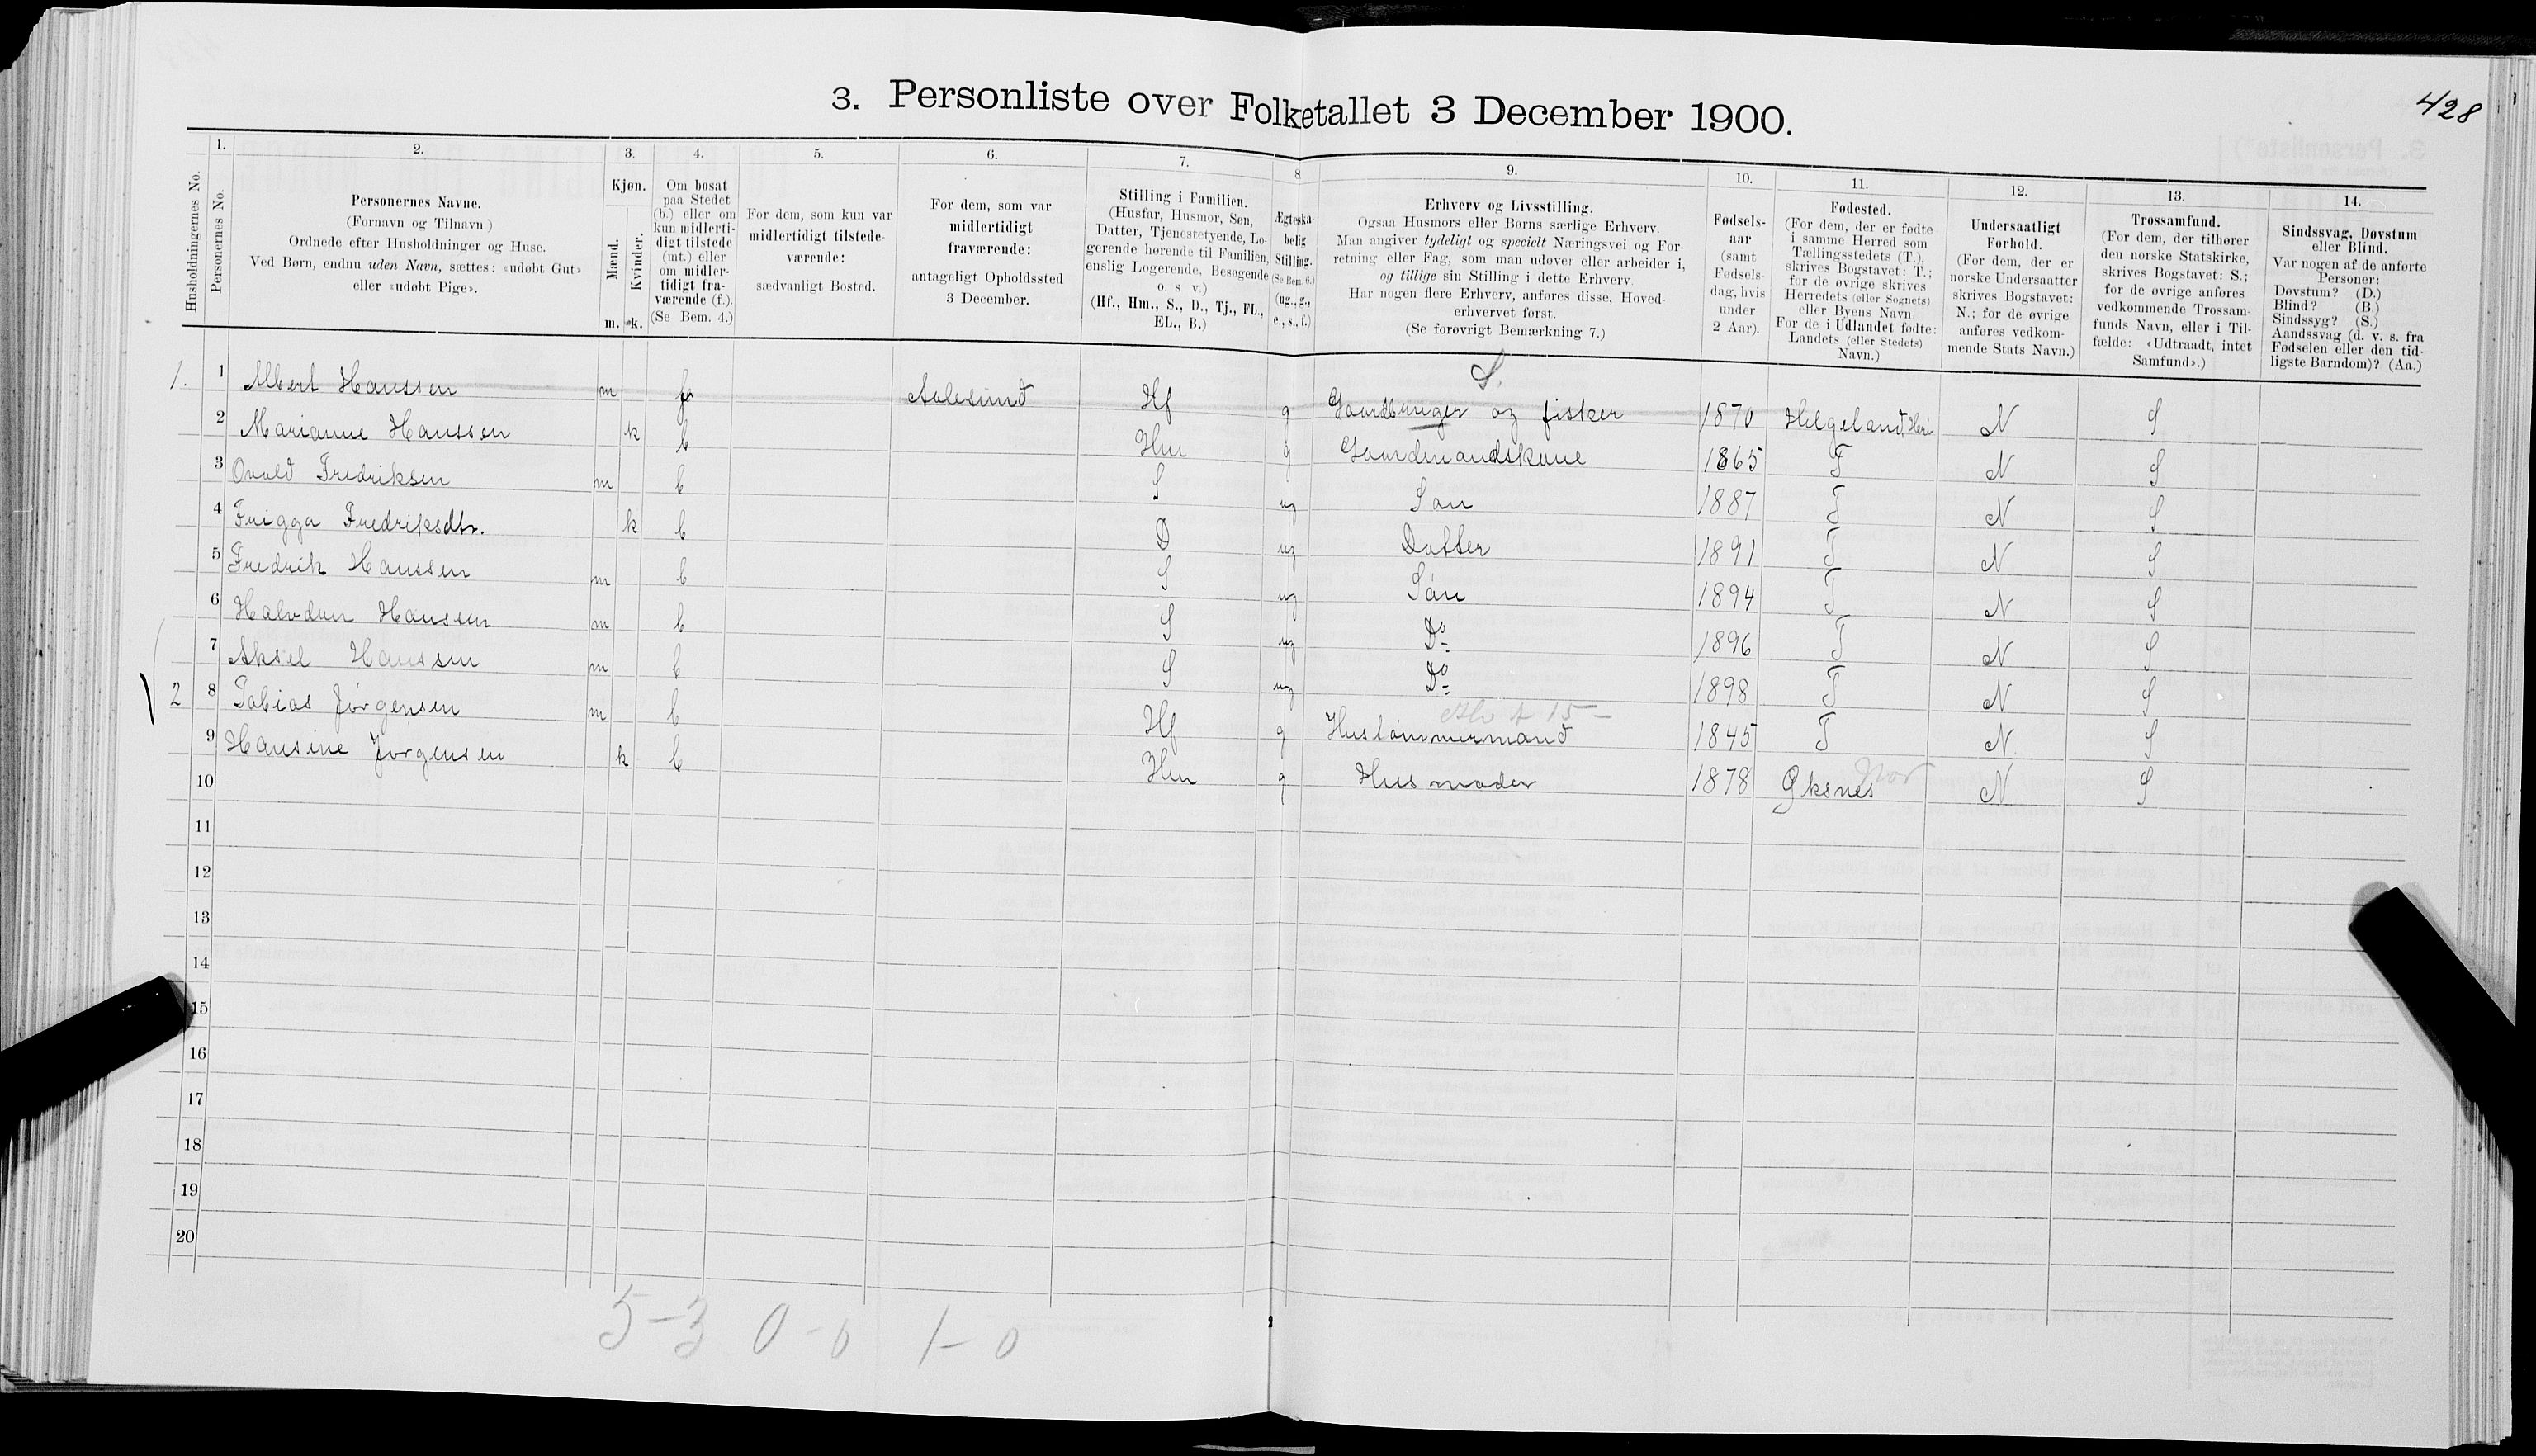 428
3. Personliste over Folketallet 3 December 1900.
Husholdningernes No.
1. Personernes No.
2. Personernes Navne.
(Fornavn og Tilnavn)
Ordnede efter Husholdninger og Huse.
Ved Børn, endnu uden Navn, sættes: «udøbt Gut»
eller «udøbt Pige».
3. Kjøn.
Mænd. Kvinder.
m. k.
4. Om bosat
paa Stedet
(b.) eller om
kun midlerti-
digt tilstede
(mt.) eller
om midler-
tidigt fra-
værende (f.).
(Se Bem. 4.)
5. For dem, som kun var
midlertidigt tilstede-
værende:
sædvanligt Bosted.
6. For dem, som var
midlertidigt
fraværende:
antageligt Opholdssted
3 December.
7. Stilling i Familien.
(Husfar, Husmor, Søn,
Datter, Tjenestetyende, Lo-
gerende hørende til Familien,
enslig Logerende, Besøgende
o. s v.)
(Hf., Hm., S., D., Tj., FL.,
EL., B.)
8 Ægteska-
belig
Stilling.
(Se Bem. 6.)
(ug., g.,
e., s., f.)
9. Erhverv og Livsstilling.
Ogsaa Husmors eller Børns særlige Erhverv.
Man angiver tydeligt og specielt Næringsvei og For-
retning eller Fag, som man udøver eller arbeider i,
og tillige sin Stilling i dette Erhverv.
Har nogen flere Erhverv, anføres disse, Hoved-
erhvervet først.
(Se forøvrigt Bemærkning 7.)
10. Fødsels-
aar
(samt
Fødsels-
dag, hvis
under
2 Aar).
11. Fødested.
(For dem, der er fødte
i samme Herred som
Tællingsstedets (T.),
skrives Bogstavet: T.;
for de øvrige skrives
Herredets (eller Sognets)
eller Byens Navn
For de i Udlandet fødte:
Landets (eller Stedets)
Navn.)
12. Undersaatligt
Forhold.
(For dem, der er
norske Undersaatter
skrives Bogstavet:
N.; for de øvrige
anføres vedkom-
mende Stats Navn.)
13. Trossamfund.
(For dem, der tilhører
den norske Statskirke,
skrives Bogstavet: S.;
for de øvrige anføres
vedkommende Trossam-
funds Navn, eller i Til-
fælde: «Udtraadt, intet
Samfund».)
14. Sindssvag, Døvstum
eller Blind.
Var nogen af de anførte
Personer:
Døvstum? (D.)
Blind? (B.)
Sindssyg? (S.)
Aandssvag (d. v. s. fra
Fødselen eller den tid-
ligste Barndom)? (Aa.)
S.
1. 1 Albert Hanssen m f Aalesund Hf g Gaardbruger og fisker 1870 Helgeland N S
2 Marianne Hanssen k b Hm g Gaardmandskone 1865 T N S
3 Ovald Fredriksen m b S ug Søn 1887 T N S
4 Frigga Fredriksdtr. k b D ug Datter 1891 T N S
5 Fredrik Hanssen m b S ug Søn 1894 T N S
6 Halvdan Hanssen m b S ug Do 1896 T N S
7 Aksel Hanssen m b S ug Do 1898 T N S
15 –
2 8 Tobias Jørgensen m b Hf g Hustømmermand 1845 T N S
9 Hansine Jørgensen k b Hm g Husmoder 1878 Øksnes Nor N S
10
11
12
13
14
15
16
17
18
19
20
5-3 0-0 1-0